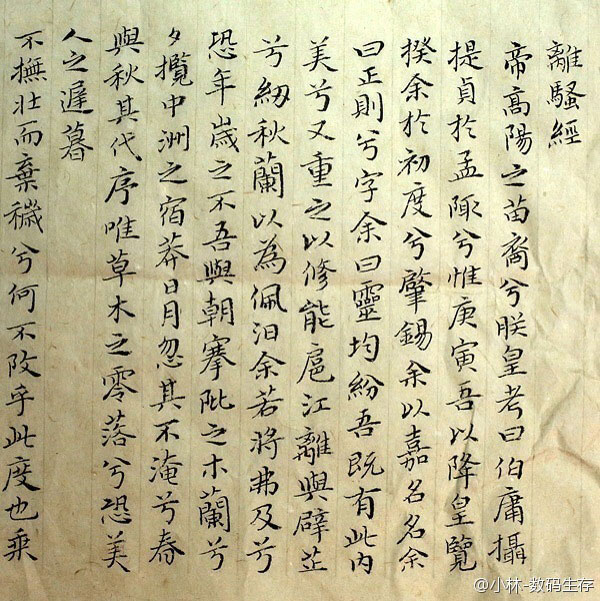 離騷經
帝高陽之苗裔兮朕皇考曰伯庸攝
提貞於孟陬兮惟庚寅吾以降皇覽
揆余於初度兮肇錫余以嘉名名余
曰正則兮字余曰靈均紛吾既有此內
美兮又重之以修能扈江離與辟芷
兮紉秋蘭以為佩汩余若將弗及兮
恐年歲之不吾與朝搴阰之木蘭兮
夕攬中洲之宿莽日月忽其不淹兮春
與秋其代序唯草木之零落兮恐美
人之遲暮
不撫壯而棄穢兮何不改乎此度也乘
@小林-数码生存